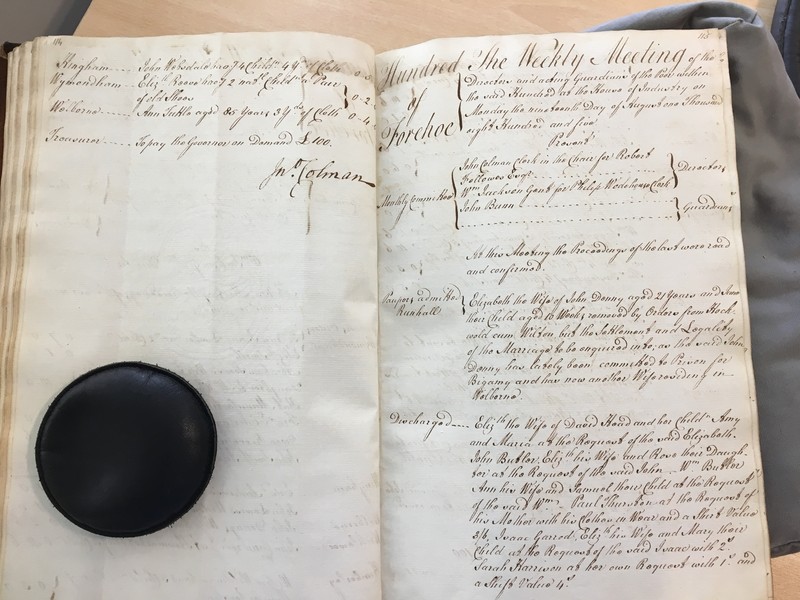 114
Kingham John Wakefield has 4 Child.n 4 y.ds of Cloth 0
Wymondham Eliz.th Reeve has 2 nat.l Child.n a Pair
of old Shoes 0-2
Welborne Ann Tuttle aged 85 Years 3 y.ds of Cloth 0-4
Treasurer To pay the Governor on Demand £100.
Jn.o Colman
115
Hundred of Forehoe
The Weekly Meeting of the
Directors and acting Guardians of the Poor within
the said Hundred at the House of Industry on
Monday the nineteenth Day of August one Thousand
eight Hundred and five
Present
John Colman Clerk in the Chair for Robert
Fellowes Esqr.
Directors
Monthly Committee
Wm. Jackson Gent for Philip Wodehouse Clerk
John Bann
Guardians
At this Meeting the Proceedings of the last were read
and confirmed.
Paupers admitted
Runhall
Elizabeth the Wife of John Denny aged 21 Years and
their Child aged 16 Weeks removed by Orders from Hock
wold cum Wilton but the Settlement and Legality
of the Marriage to be enquired into, as the said John
Denny has lately been committed to Prison for
Bigamy and has now another Wife residing in
Welborne.
Discharged Eliz.th the Wife of David Head and her Child.n Amy
and Maria at the Request of the said Elizabeth.
John Butler, Eliz.th his Wife and Rose their Daugh-
ter at the Request of the said John. Wm. Butler
Ann his Wife and Samuel their Child at the Request
of the said Wm. Paul Thurston at the Request of
his Mother with his Clothes in Wear and a Shirt Value
3/6, Isaac Garrod, Eliz.th his Wife and Mary their
Child at the Request of the said Isaac with 2s.
Sarah Harrison at her own Request with 1s. and
a Shift Value 4s.